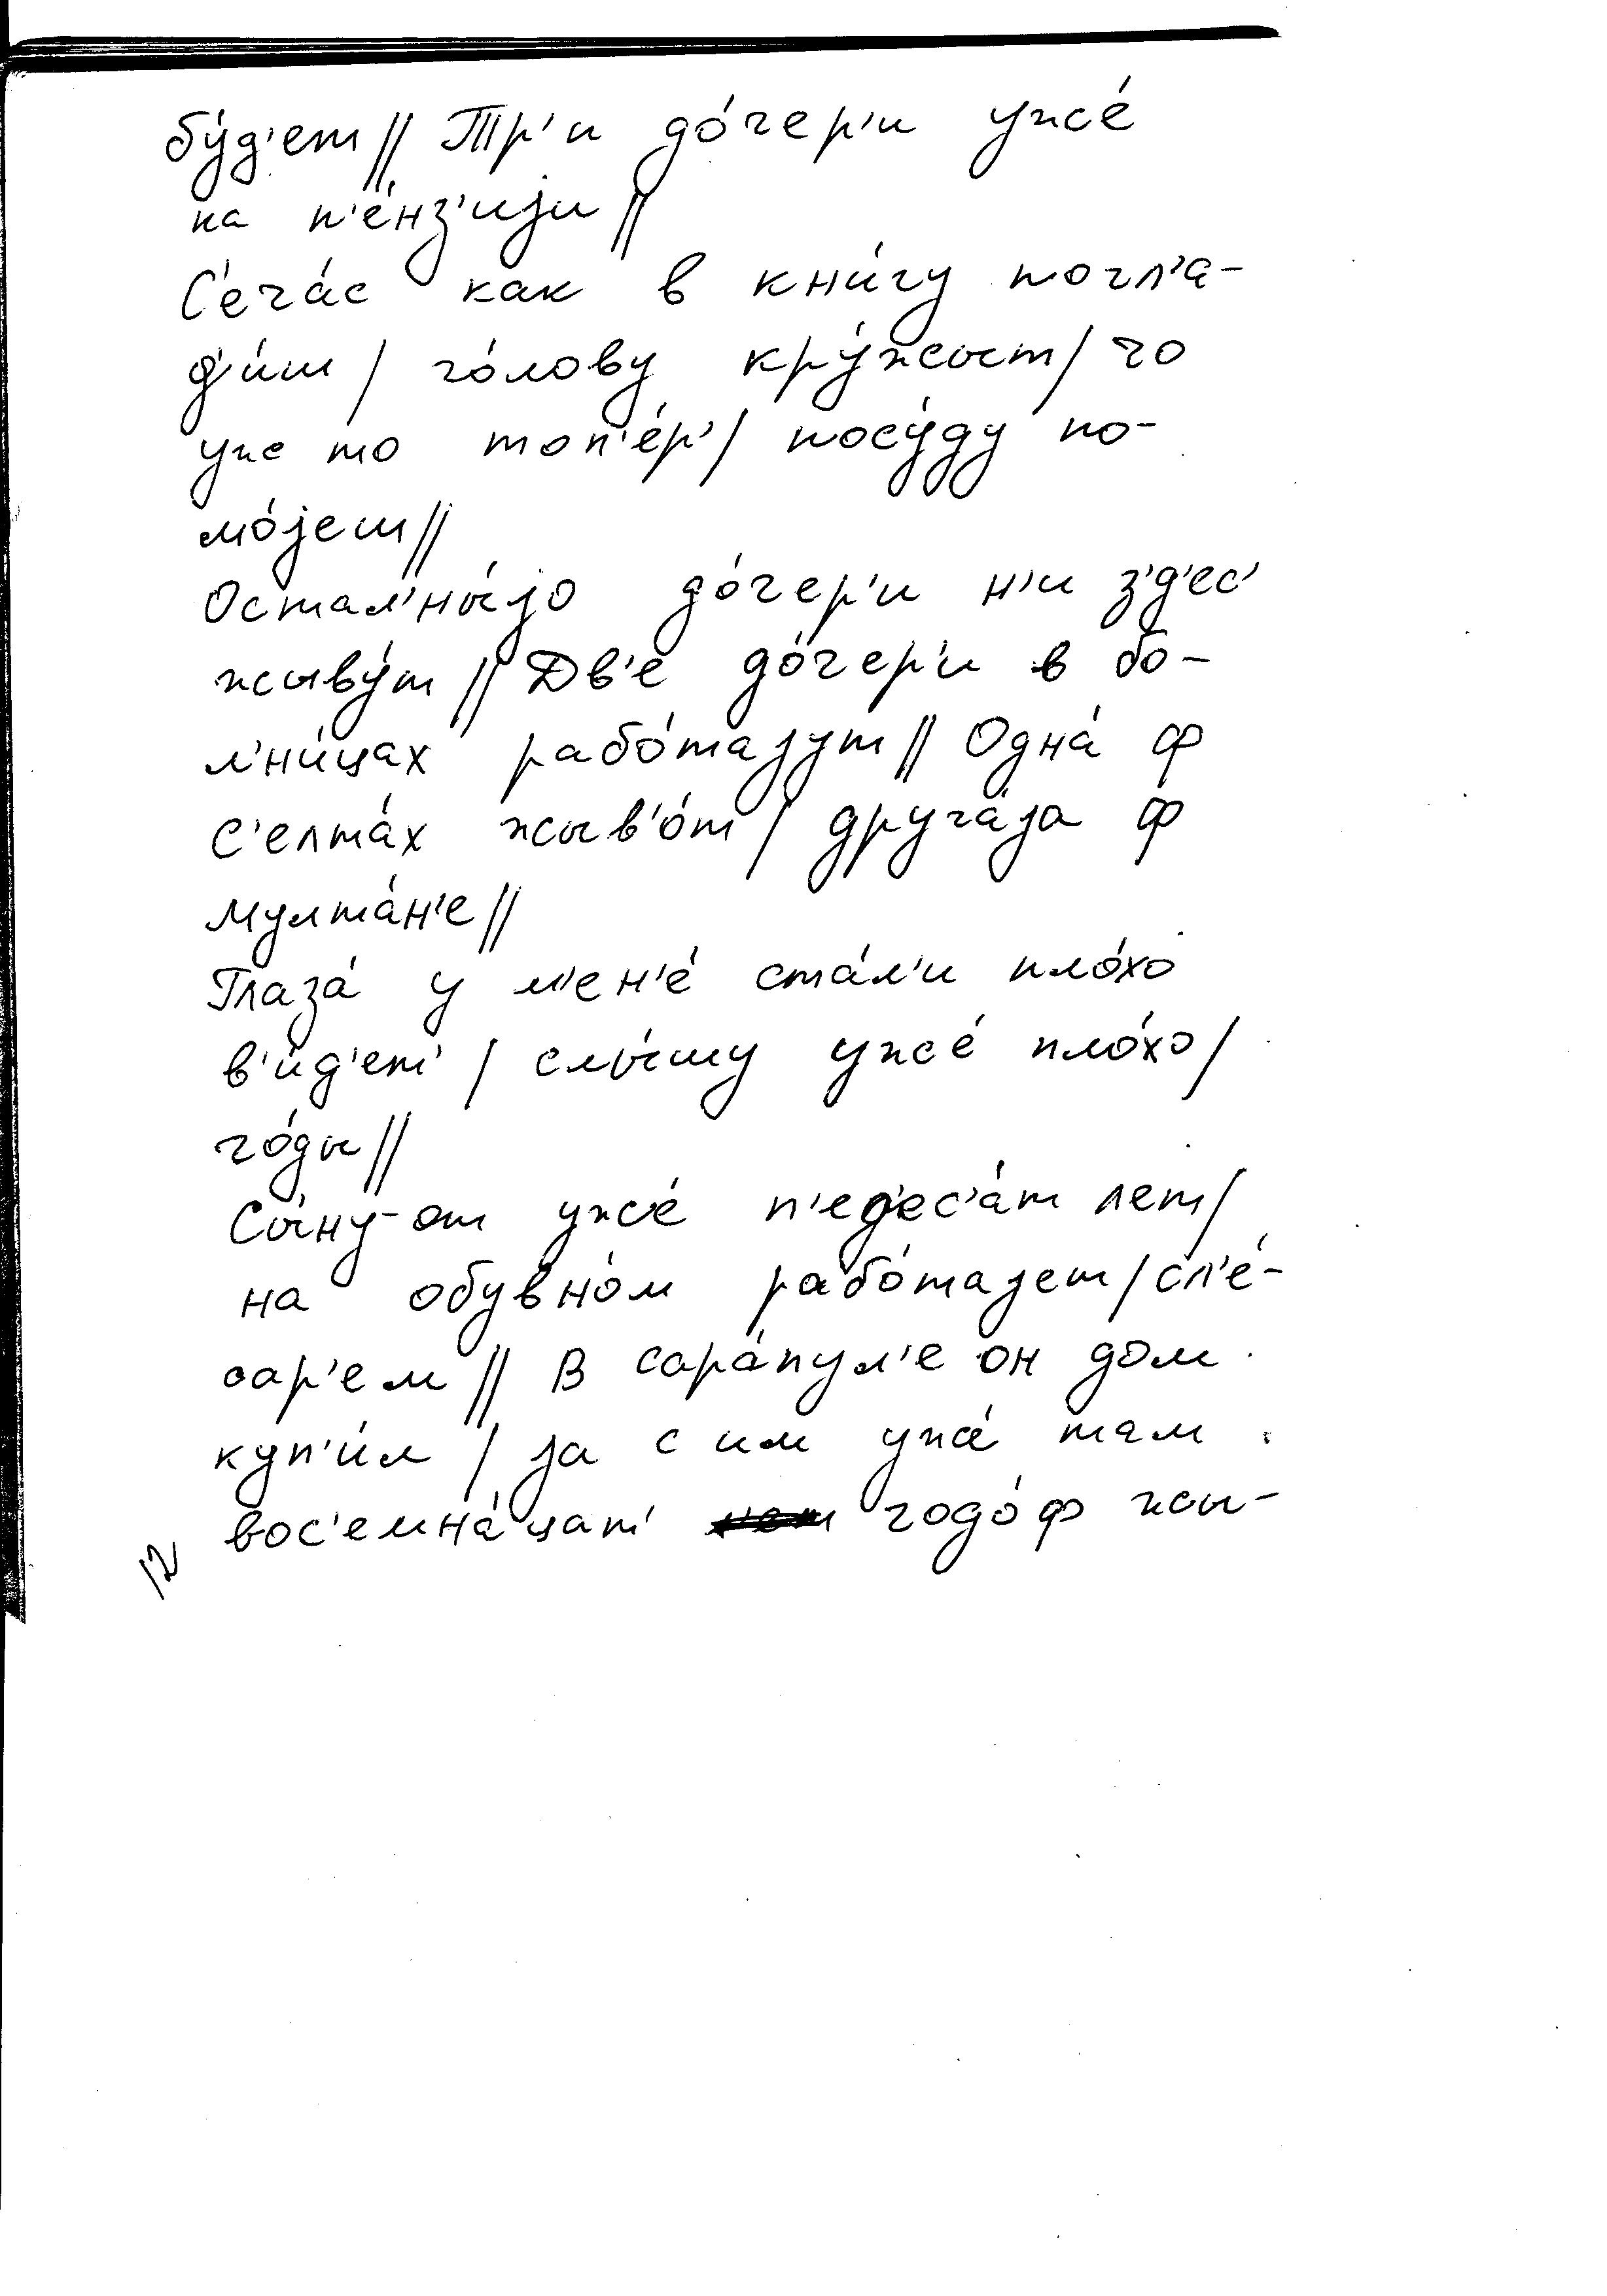 бу́д'ет // Тр'и до́чер'и ужé
на п'éнз'иjи //
С'еча́с как в кни́гу погл'а-
д'и́ш / го́лову кру́жыт / чо
уж то топ'éр' / посу́ду по-
мо́jеш //
Остал'ны́jо до́чер'и н'и з'д'ес'
жыву́т // Дв'е до́чер'и в бо-
л'ни́цах рабо́таjут // Одна́ ф
С'елта́х жыв'о́т / друга́jа ф
Мулта́н'е //
Глаза́ у м'ен'é ста́л'и пло́хо
в'и́д'ет' / слы́шу ужé пло́хо /
го́ды //
Сы́ну-от ужé п'ед'ес'а́т лет /
на обувно́м рабо́таjет / сл'é-
сар'ем // В Сара́пул'е он дом
куп'и́л / jа с им ужé там
вос'емна́цат' годо́ф жы-
12